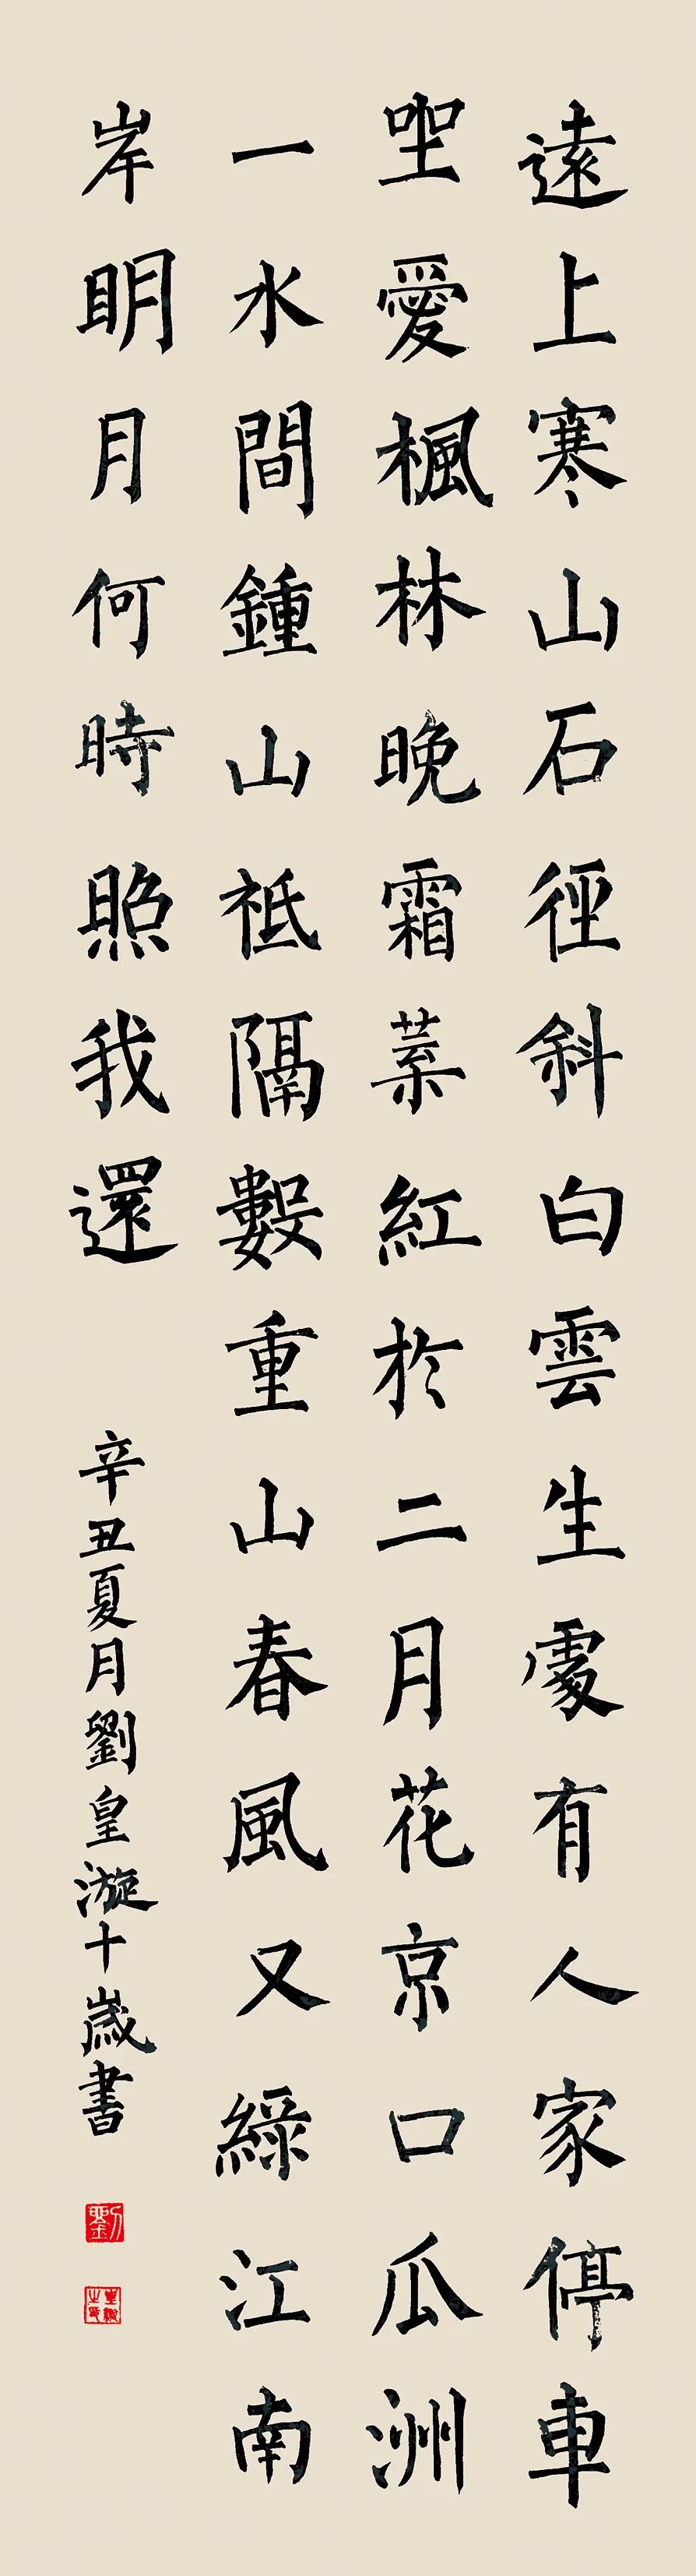 遠上寒山石徑斜白雲生處有人家停車
坐愛楓林晚霜葉紅於二月花京口瓜洲
一水間鍾山祗隔數重山春風又綠江南
岸眀月何時照我還
辛丑夏月劉皇漩十歲書
劉